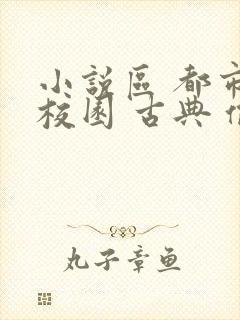 小説區 都市
校園 古典
丸子章鱼